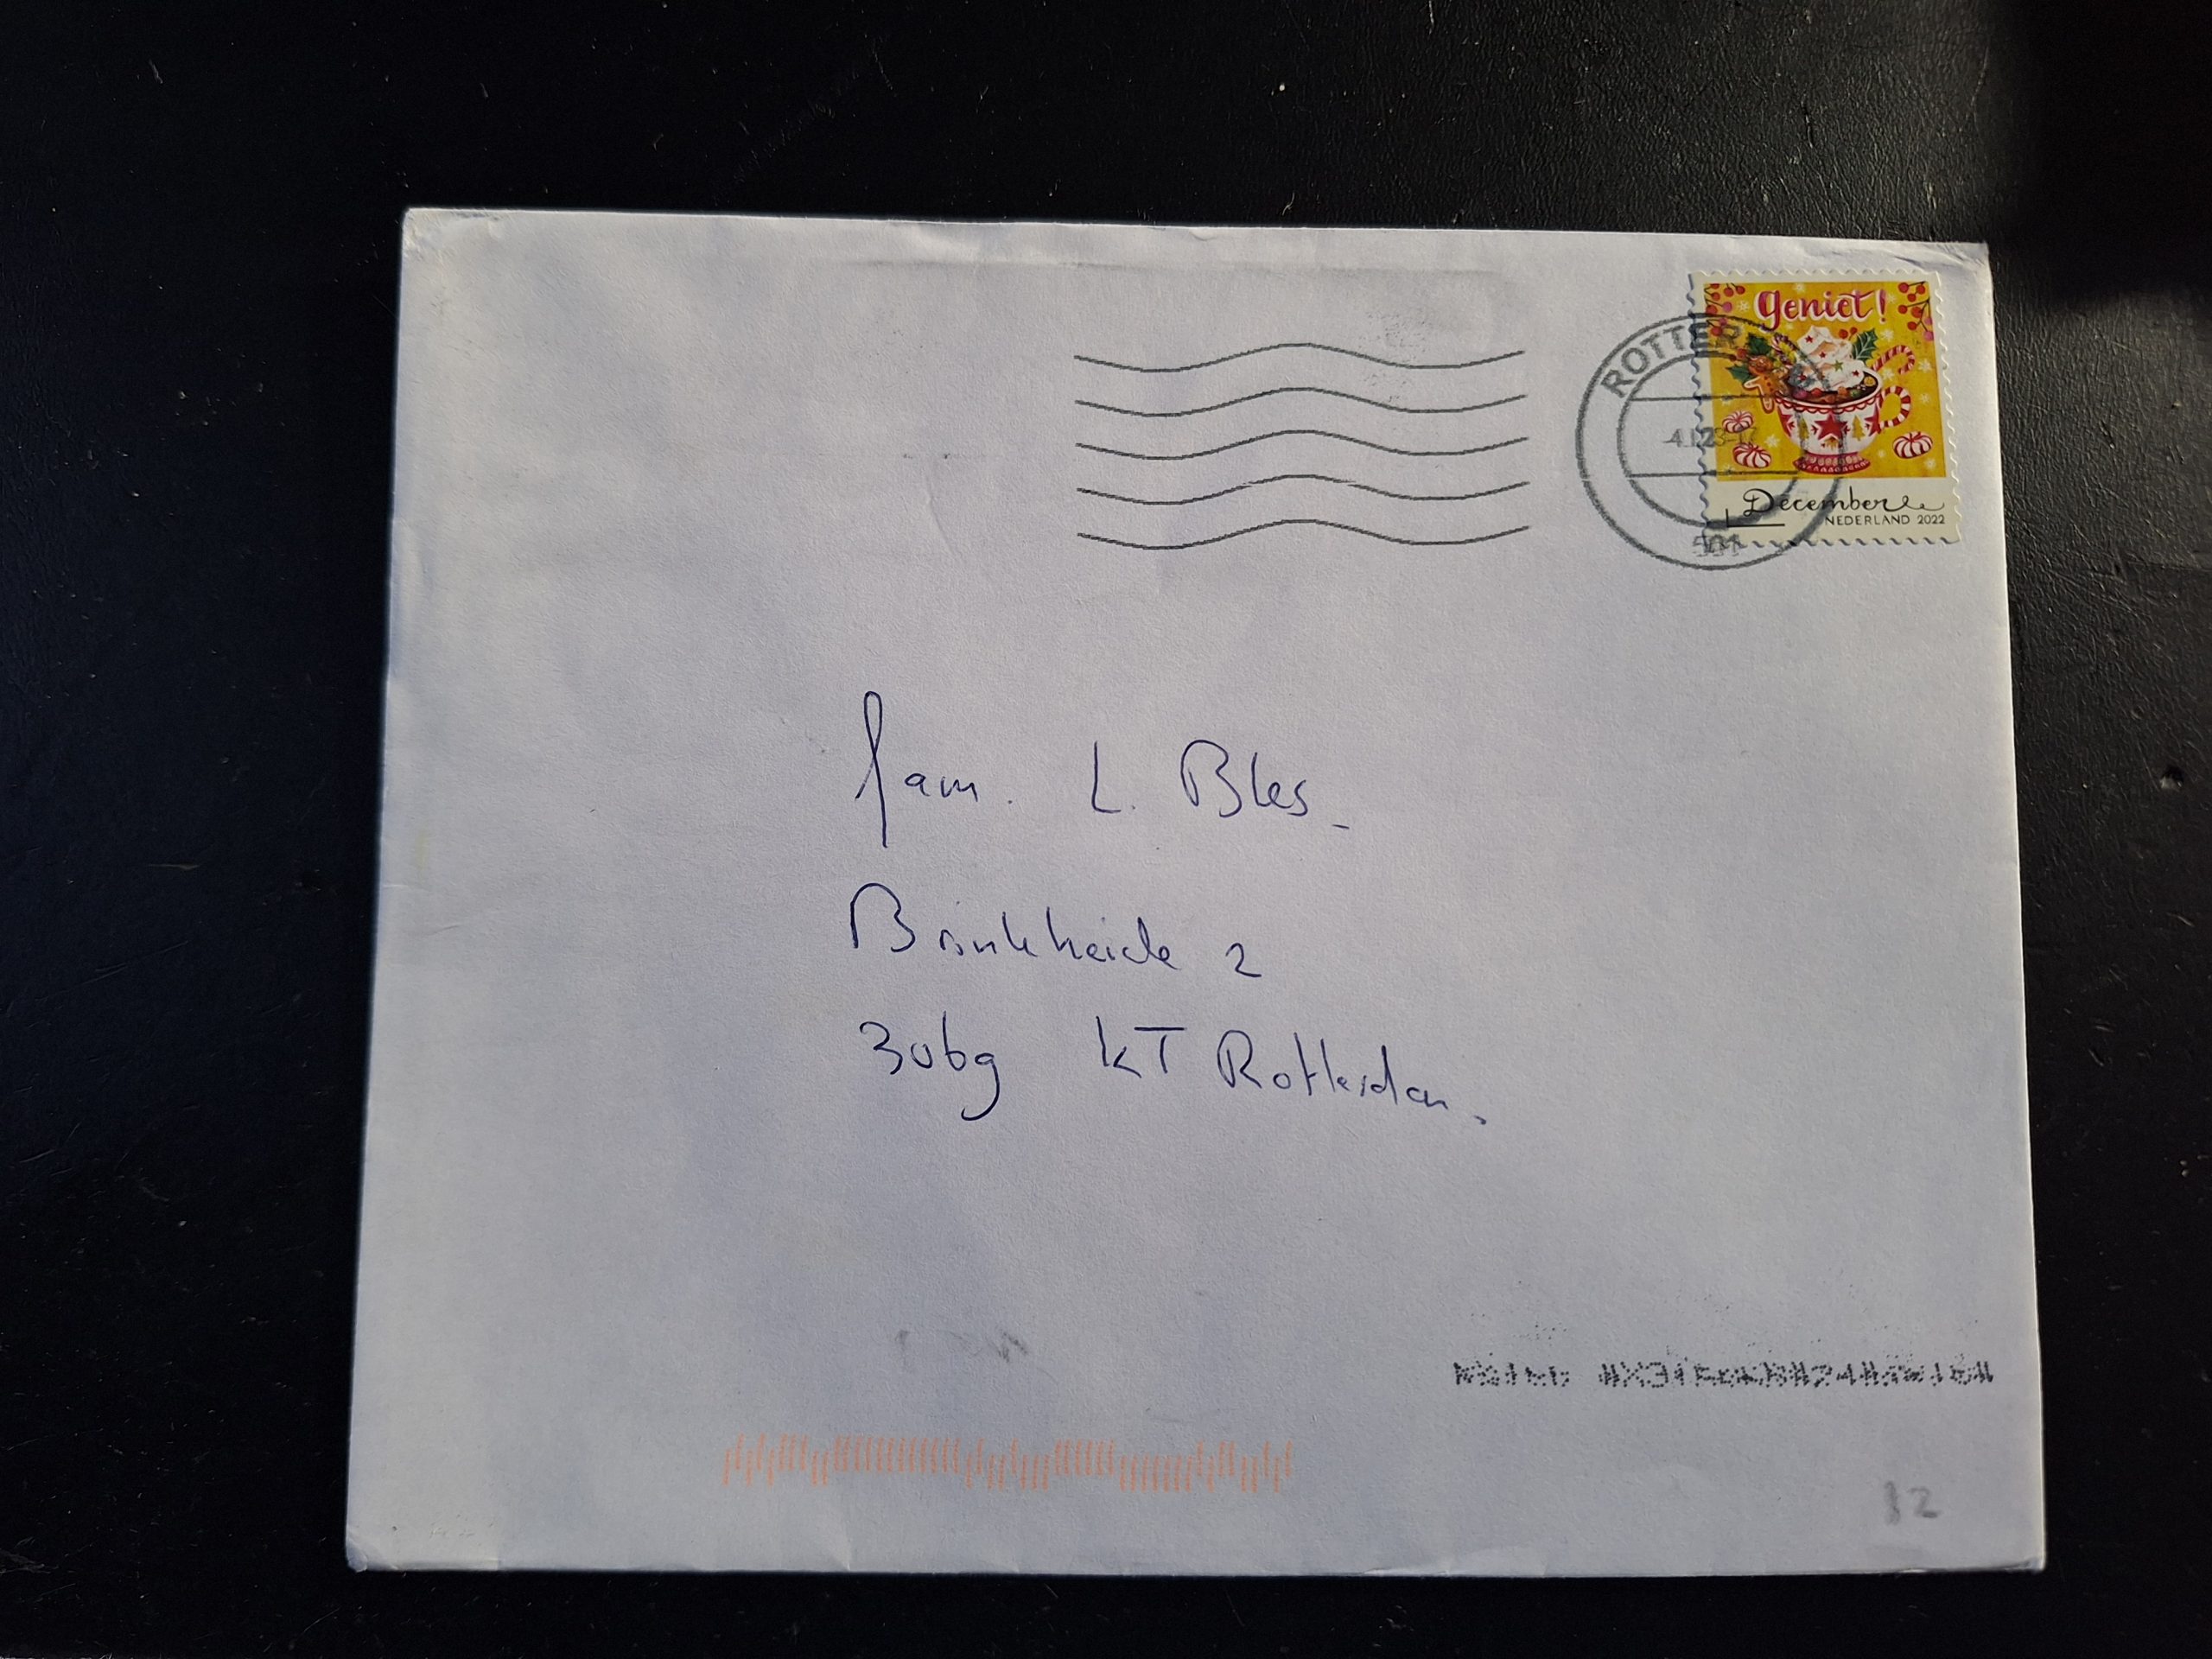 Geniet!
ROTTERDAM
4.I.23-17
December
NEDERLAND 2022
fam. L. Bles.
Brinkheide 2
3069 KT Rotterdam.
12